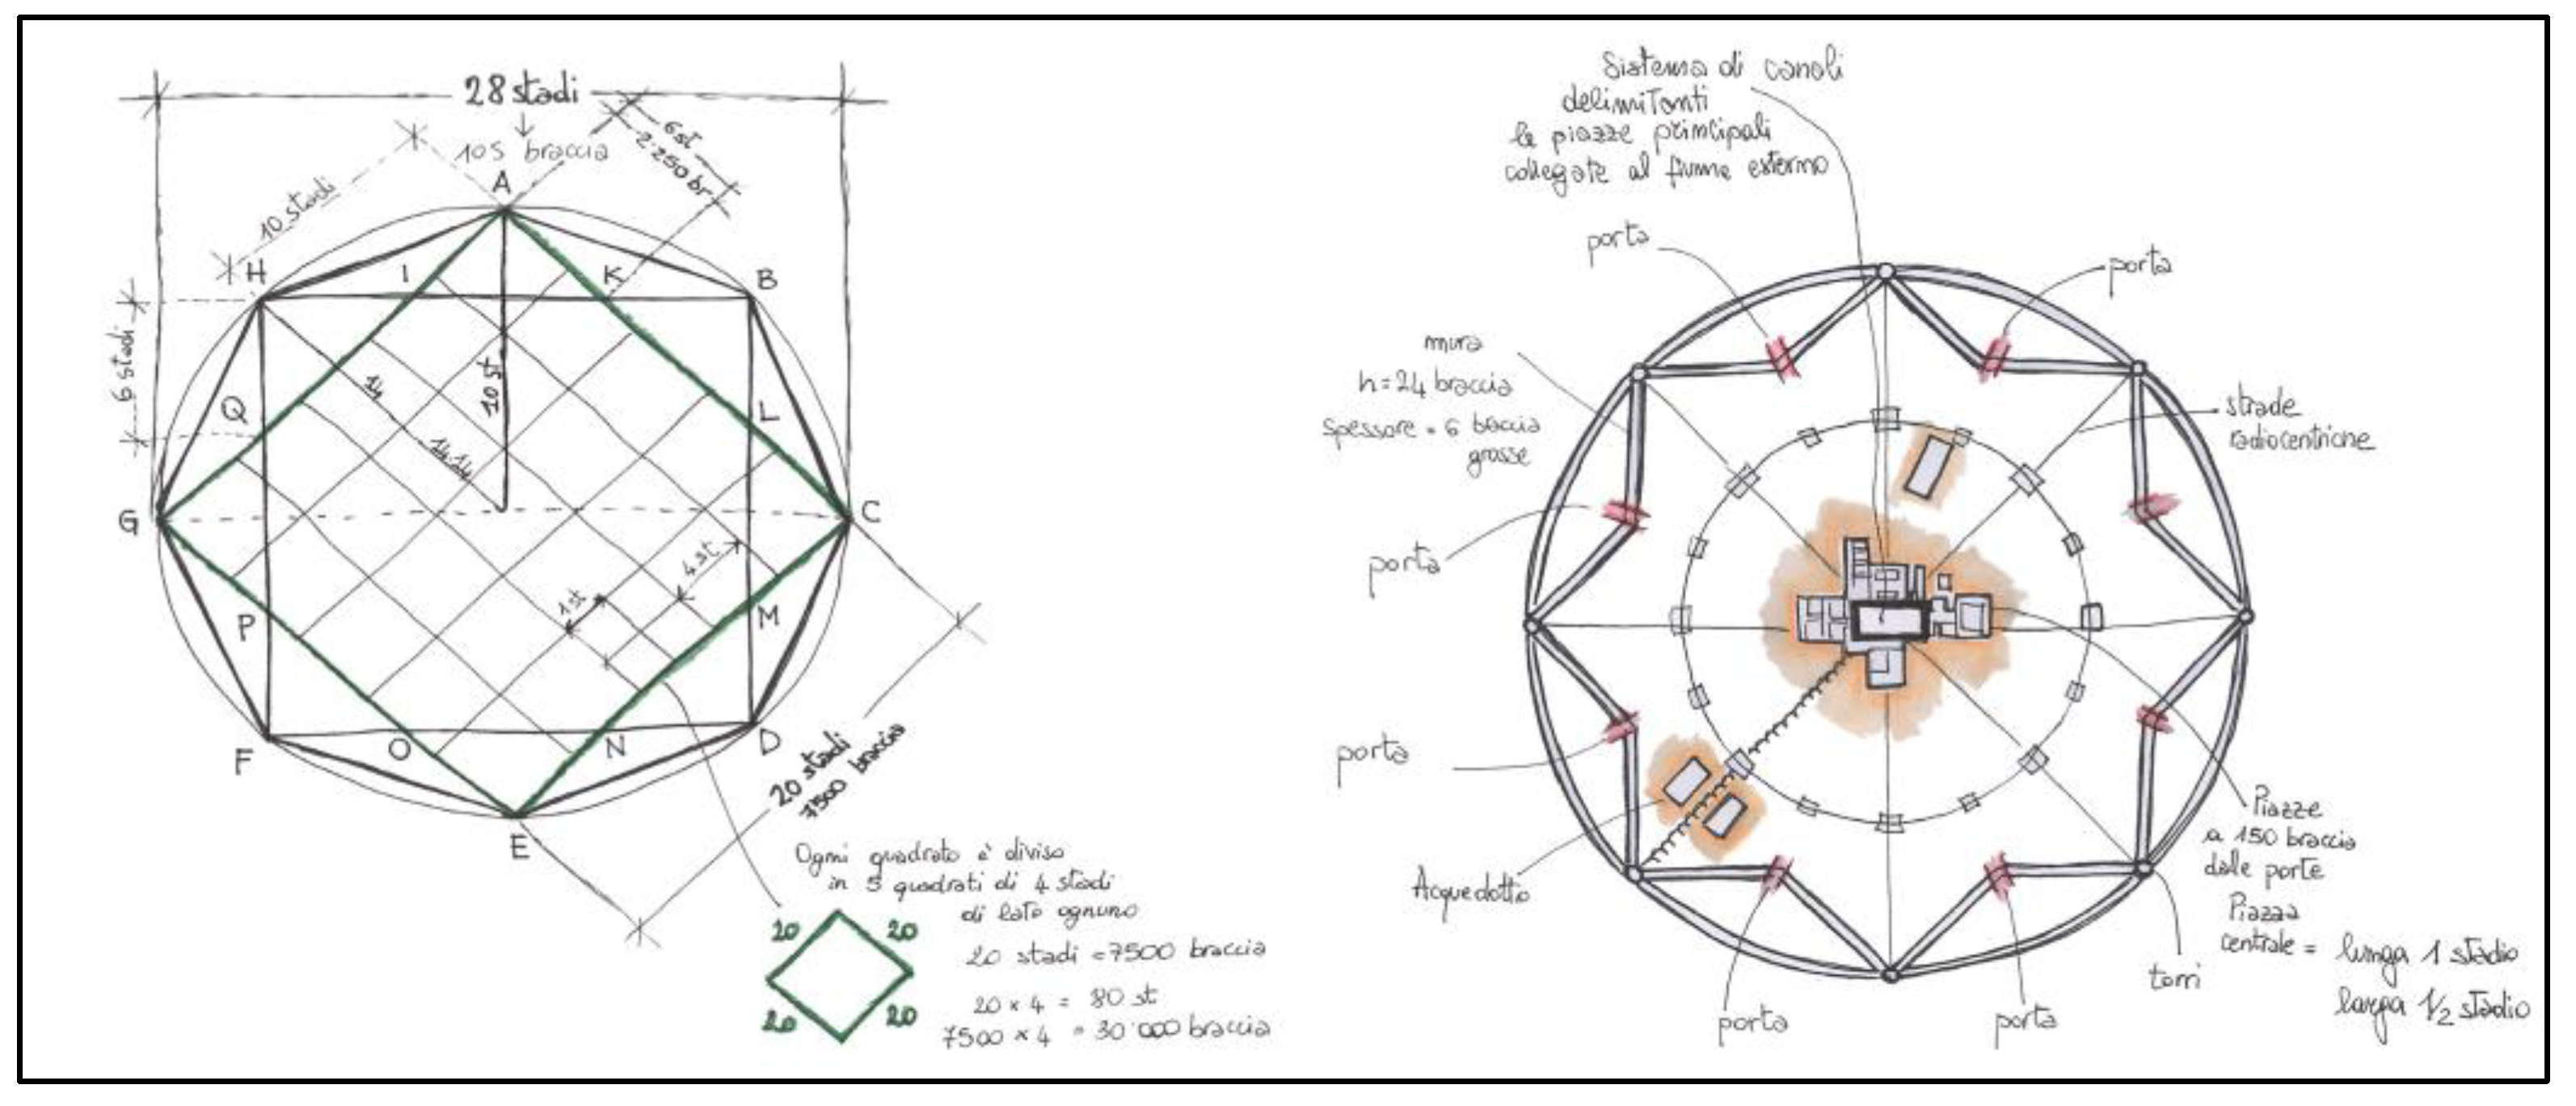 28 stadi
105 braccia
6st
2·250 br
10 stadi
A
H
I
K
B
6 stadi
14
1075
Q
L
14.14
G
C
4st
1st
P
M
F
O
N
D
E
20 stadi
7500 braccia
Ogni quadrato è diviso
in 5 quadrati di 4 stadi
di lato ognuno
20
20
20
20
20 stadi = 7500 braccia
20 x 4 = 80 st
7500 x 4 = 30'000 braccia
Sistema di canali
delimitanti
le piazze principali
collegate al fiume esterno
porta
porta
mura
h=24 braccia
spessore = 6 braccia
grosse
strade
radiocentriche
porta
porta
Acquedotto
Piazze
a 150 braccia
dalle porte
Piazza
centrale = lunga 1 stadio
larga 1/2 stadio
torri
porta
porta